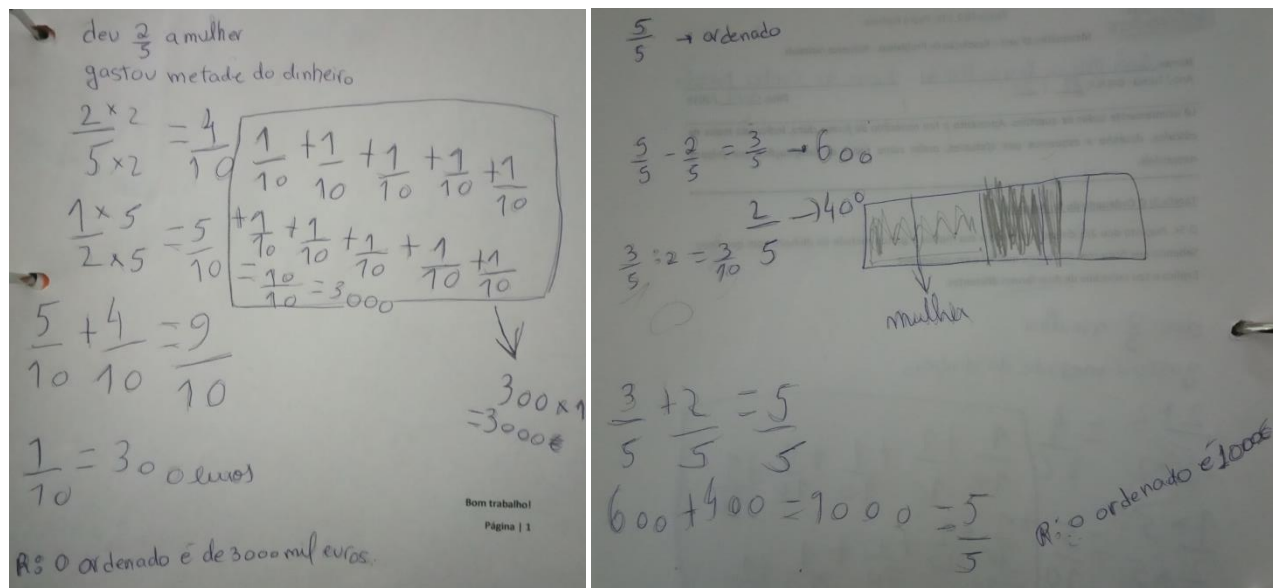 deu 2/5 a mulher
gastou metade do dinheiro
2 × 2 / 5 × 2 = 4/10
1 × 5 / 2 × 5 = 5/10
5/10 + 4/10 = 9/10
1/10 = 300 euros
1/10 + 1/10 + 1/10 + 1/10 + 1/10
+ 1/10 + 1/10 + 1/10 + 1/10 + 1/10
= 10/10 = 3000
300 × 1
= 3000€
Bom trabalho!
Página | 1
R: O ordenado é de 3000 mil euros.
5/5 → ordenado
5/5 - 2/5 = 3/5 → 600
2/5 → 400
3/5 ÷ 2 = 3/10
mulher
3/5 + 2/5 = 5/5
600 + 400 = 1000 = 5/5
R: O ordenado é 1000€